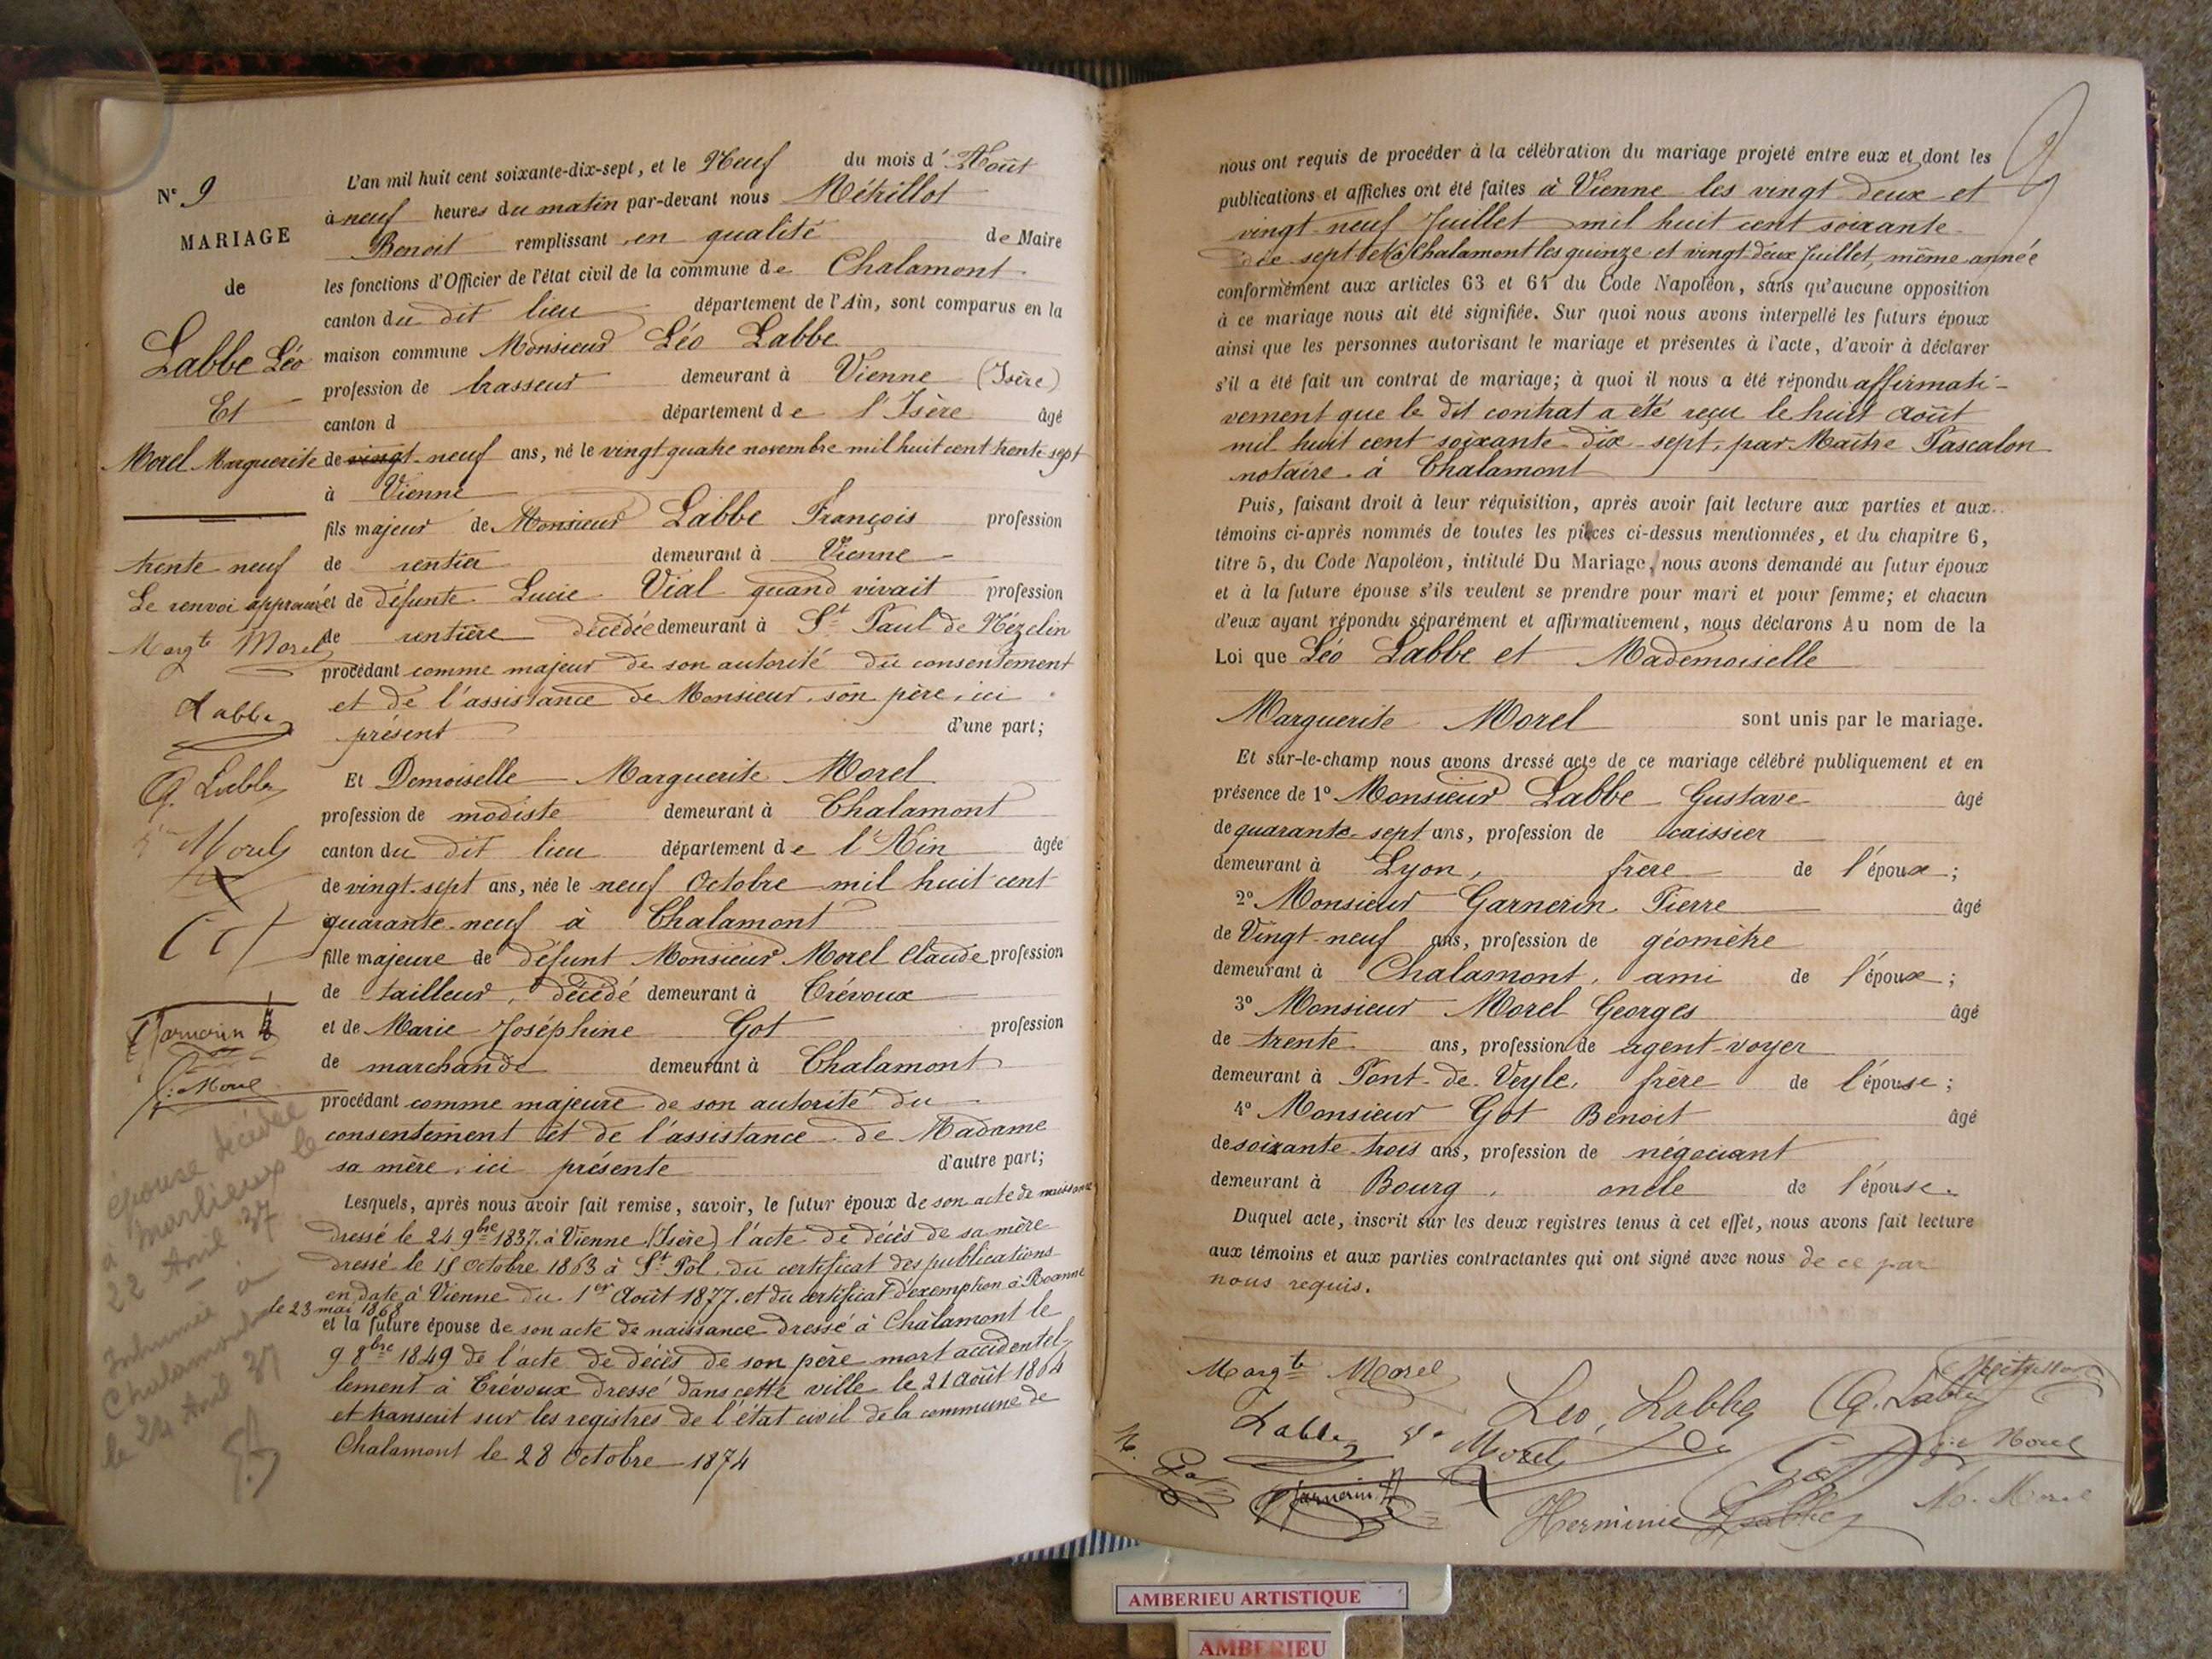 N° 9
MARIAGE
de
Labbe Léo
Et
Morel Marguerite
trente neuf
Le renvoi approuvé
Margte Morel
Labbe
G. Labbe
Morel
Garnerin
Morel
épouse décédée
à Marlieux le
22 Avril 37
Inhumée à
Chalamont
le 24 Avril 37
L'an mil huit cent soixante-dix-sept, et le Neuf du mois d'Août
à neuf heures du matin par-devant nous Métrillot
Benoit remplissant en qualité de Maire
les fonctions d'Officier de l'état civil de la commune de Chalamont
canton du dit lieu département de l'Ain, sont comparus en la
maison commune Monsieur Léo Labbe
profession de brasseur demeurant à Vienne (Isère)
canton d département de l'Isère âgé
de vingt-neuf ans, né le vingt quatre novembre mil huit cent trente sept
à Vienne
fils majeur de Monsieur Labbe François profession
de rentier demeurant à Vienne
et de défunte Lucie Vial quand vivait profession
de rentière décédée demeurant à St Paul de Vézelin
procédant comme majeur de son autorité du consentement
et de l'assistance de Monsieur son père, ici
présent d'une part;
Et Demoiselle Marguerite Morel
profession de modiste demeurant à Chalamont
canton du dit lieu département de l'Ain âgée
de vingt-sept ans, née le neuf Octobre mil huit cent
quarante-neuf à Chalamont
fille majeure de défunt Monsieur Morel Claude profession
de tailleur, décédé demeurant à Trévoux
et de Marie Joséphine Got profession
de marchande demeurant à Chalamont
procédant comme majeure de son autorité du
consentement et de l'assistance de Madame
sa mère, ici présente d'autre part;
Lesquels, après nous avoir fait remise, savoir, le futur époux de son acte de naissance
dressé le 24 9bre 1837 à Vienne (Isère) l'acte de décès de sa mère
dressé le 15 Octobre 1863 à St Pôl, du certificat des publications
en date à Vienne du 1er Août 1877, et du certificat d'exemption à Roanne
le 23 mai 1868
et la future épouse de son acte de naissance dressé à Chalamont le
9 8bre 1849 de l'acte de décès de son père mort accidentel-
lement à Trévoux dressé dans cette ville le 21 Août 1864
et transcrit sur les registres de l'état civil de la commune de
Chalamont le 28 Octobre 1874
nous ont requis de procéder à la célébration du mariage projeté entre eux et dont les
publications et affiches ont été faites à Vienne les vingt deux et
vingt neuf Juillet mil huit cent soixante
dix-sept et à Chalamont les quinze et vingt-deux Juillet, même année
conformément aux articles 63 et 64 du Code Napoléon, sans qu'aucune opposition
à ce mariage nous ait été signifiée. Sur quoi nous avons interpellé les futurs époux
ainsi que les personnes autorisant le mariage et présentes à l'acte, d'avoir à déclarer
s'il a été fait un contrat de mariage; à quoi il nous a été répondu affirmati-
vement que le dit contrat a été reçu le huit Août
mil huit cent soixante-dix-sept, par Maître Pascalon
notaire à Chalamont
Puis, faisant droit à leur réquisition, après avoir fait lecture aux parties et aux
témoins ci-après nommés de toutes les pièces ci-dessus mentionnées, et du chapitre 6,
titre 5, du Code Napoléon, intitulé Du Mariage, nous avons demandé au futur époux
et à la future épouse s'ils veulent se prendre pour mari et pour femme; et chacun
d'eux ayant répondu séparément et affirmativement, nous déclarons Au nom de la
Loi que Léo Labbe et Mademoiselle
Marguerite Morel sont unis par le mariage.
Et sur-le-champ nous avons dressé acte de ce mariage célébré publiquement et en
présence de 1° Monsieur Labbe Gustave âgé
de quarante-sept ans, profession de caissier
demeurant à Lyon, frère de l'époux;
2° Monsieur Garnerin Pierre âgé
de Vingt-neuf ans, profession de géomètre
demeurant à Chalamont, ami de l'époux;
3° Monsieur Morel Georges âgé
de trente ans, profession de agent-voyer
demeurant à Pont-de-Veyle, frère de l'épouse;
4° Monsieur Got Benoit âgé
de soixante trois ans, profession de négociant
demeurant à Bourg, oncle de l'épouse.
Duquel acte, inscrit sur les deux registres tenus à cet effet, nous avons fait lecture
aux témoins et aux parties contractantes qui ont signé avec nous de ce par
nous requis.
Margte Morel Léo Labbe G. Labbe
Labbe Morel Morel
Garnerin Herminie Labbe M. Morel
AMBERIEU ARTISTIQUE
AMBERIEU